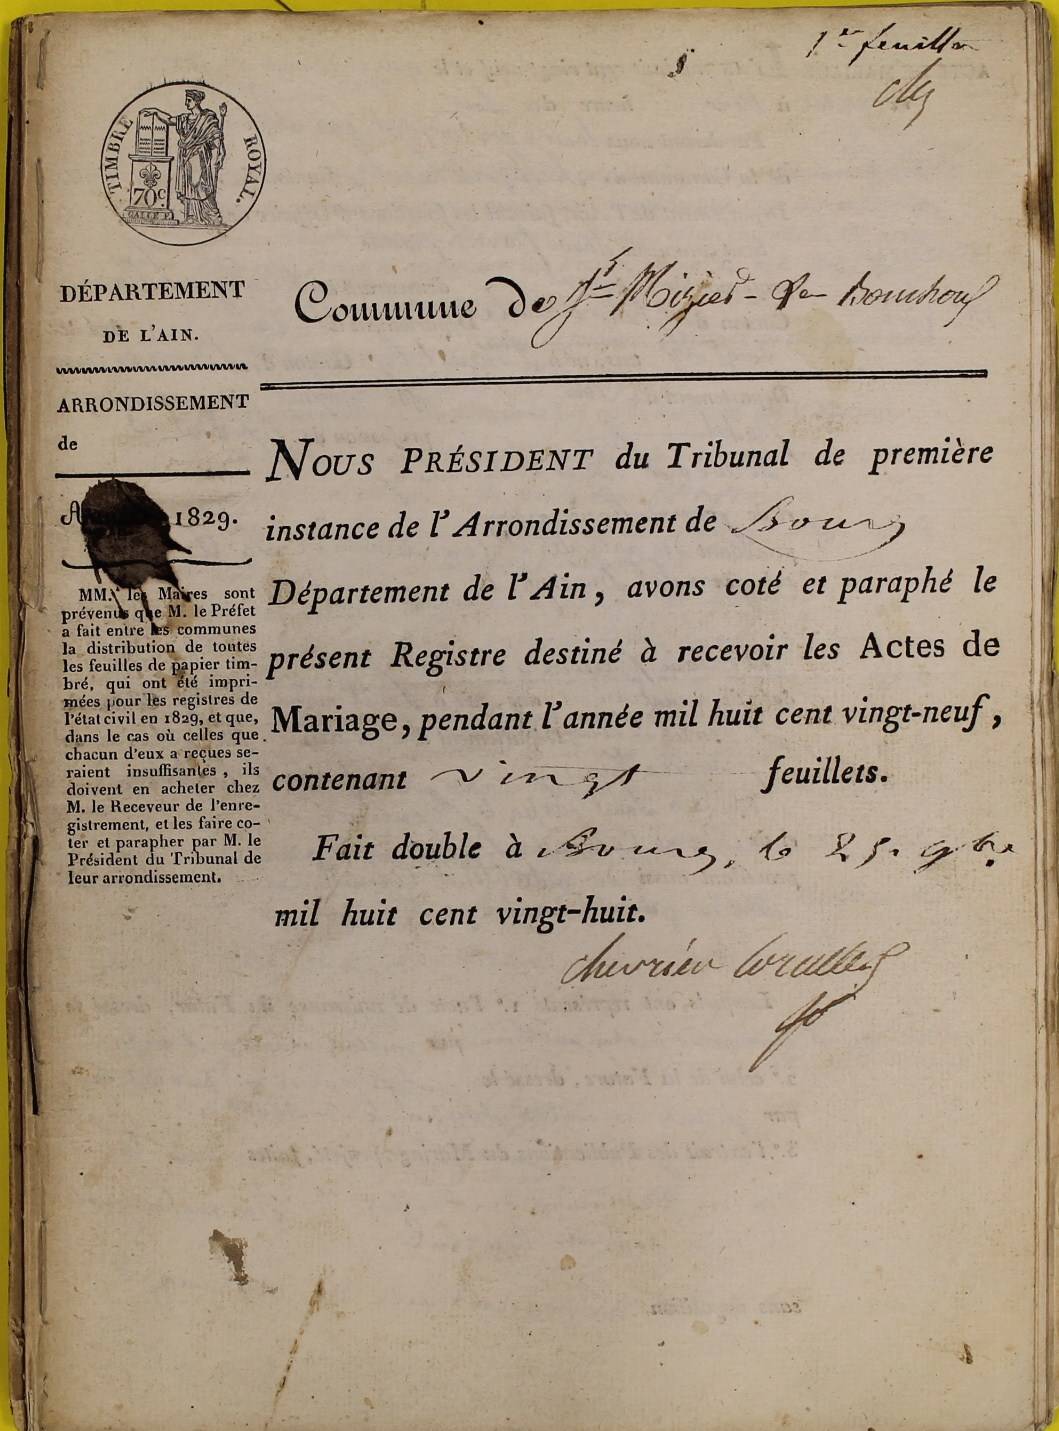 1er feuillet
TIMBRE ROYAL.
70c
GALLE F.
DÉPARTEMENT
DE L'AIN.
ARRONDISSEMENT
de
1829.
MM. les Maires sont
prévenus que M. le Préfet
a fait entre les communes
la distribution de toutes
les feuilles de papier tim-
bré, qui ont été impri-
mées pour les registres de
l'état civil en 1829, et que,
dans le cas où celles que
chacun d'eux a reçues se-
raient insuffisantes, ils
doivent en acheter chez
M. le Receveur de l'enre-
gistrement, et les faire co-
ter et parapher par M. le
Président du Tribunal de
leur arrondissement.
Commune de St Nizier-le-Bouchoux
NOUS PRÉSIDENT du Tribunal de première
instance de l'Arrondissement de Bourg
Département de l'Ain, avons coté et paraphé le
présent Registre destiné à recevoir les Actes de
Mariage, pendant l'année mil huit cent vingt-neuf,
contenant vingt feuillets.
Fait double à Bourg, le 25. 9bre
mil huit cent vingt-huit.